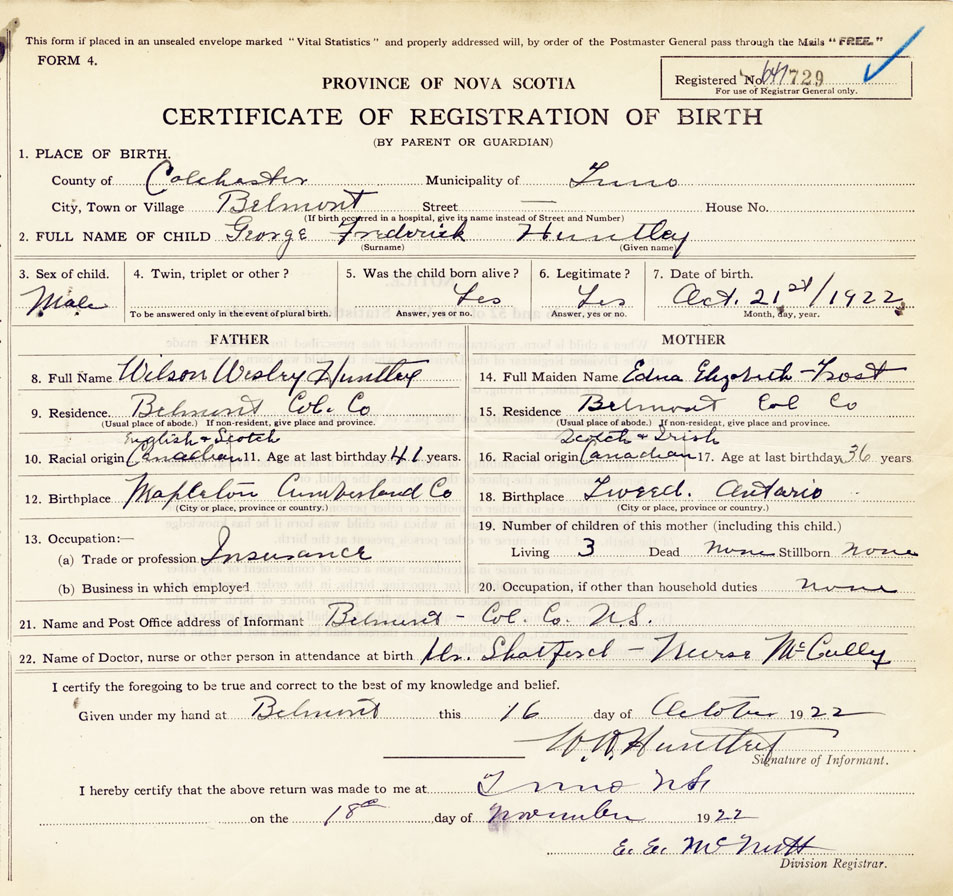 This form if placed in an unsealed envelope marked "Vital Statistics" and properly addressed will, by order of the Postmaster General pass through the Mails "FREE."
FORM 4.
Registered No. 729
For use of Registrar General only.
PROVINCE OF NOVA SCOTIA
CERTIFICATE OF REGISTRATION OF BIRTH
(BY PARENT OR GUARDIAN)
1. PLACE OF BIRTH.
County of Colchester Municipality of Truro
City, Town or Village Belmont Street — House No.
(If birth occurred in a hospital, give its name instead of Street and Number)
2. FULL NAME OF CHILD George Frederick Huntley
(Surname) (Given name)
3. Sex of child. 4. Twin, triplet or other? 5. Was the child born alive? 6. Legitimate? 7. Date of birth.
Male Yes Yes Oct. 21st/1922
To be answered only in the event of plural birth. Answer, yes or no. Answer, yes or no. Month, day, year.
FATHER MOTHER
8. Full Name Wilson Wesley Huntley 14. Full Maiden Name Edna Elizabeth Frost
9. Residence. Belmont Col. Co 15. Residence Belmont Col Co
(Usual place of abode.) If non-resident, give place and province. (Usual place of abode.) If non-resident, give place and province.
English & Scotch Scotch & Irish
10. Racial origin Canadian 11. Age at last birthday 41 years. 16. Racial origin Canadian 17. Age at last birthday 36 years
12. Birthplace Mapleton Cumberland Co 18. Birthplace Tweed. Ontario
(City or place, province or country.) (City or place, province or country.)
13. Occupation:— 19. Number of children of this mother (including this child.)
(a) Trade or profession Insurance Living 3 Dead none Stillborn none
(b) Business in which employed 20. Occupation, if other than household duties none
21. Name and Post Office address of Informant Belmont - Col. Co. N.S.
22. Name of Doctor, nurse or other person in attendance at birth Dr. Shatford - Nurse McCully
I certify the foregoing to be true and correct to the best of my knowledge and belief.
Given under my hand at Belmont this 16 day of October 1922
W. W. Huntley
Signature of Informant.
I hereby certify that the above return was made to me at Truro NS
on the 18th day of November 1922
E. E. McNutt
Division Registrar.